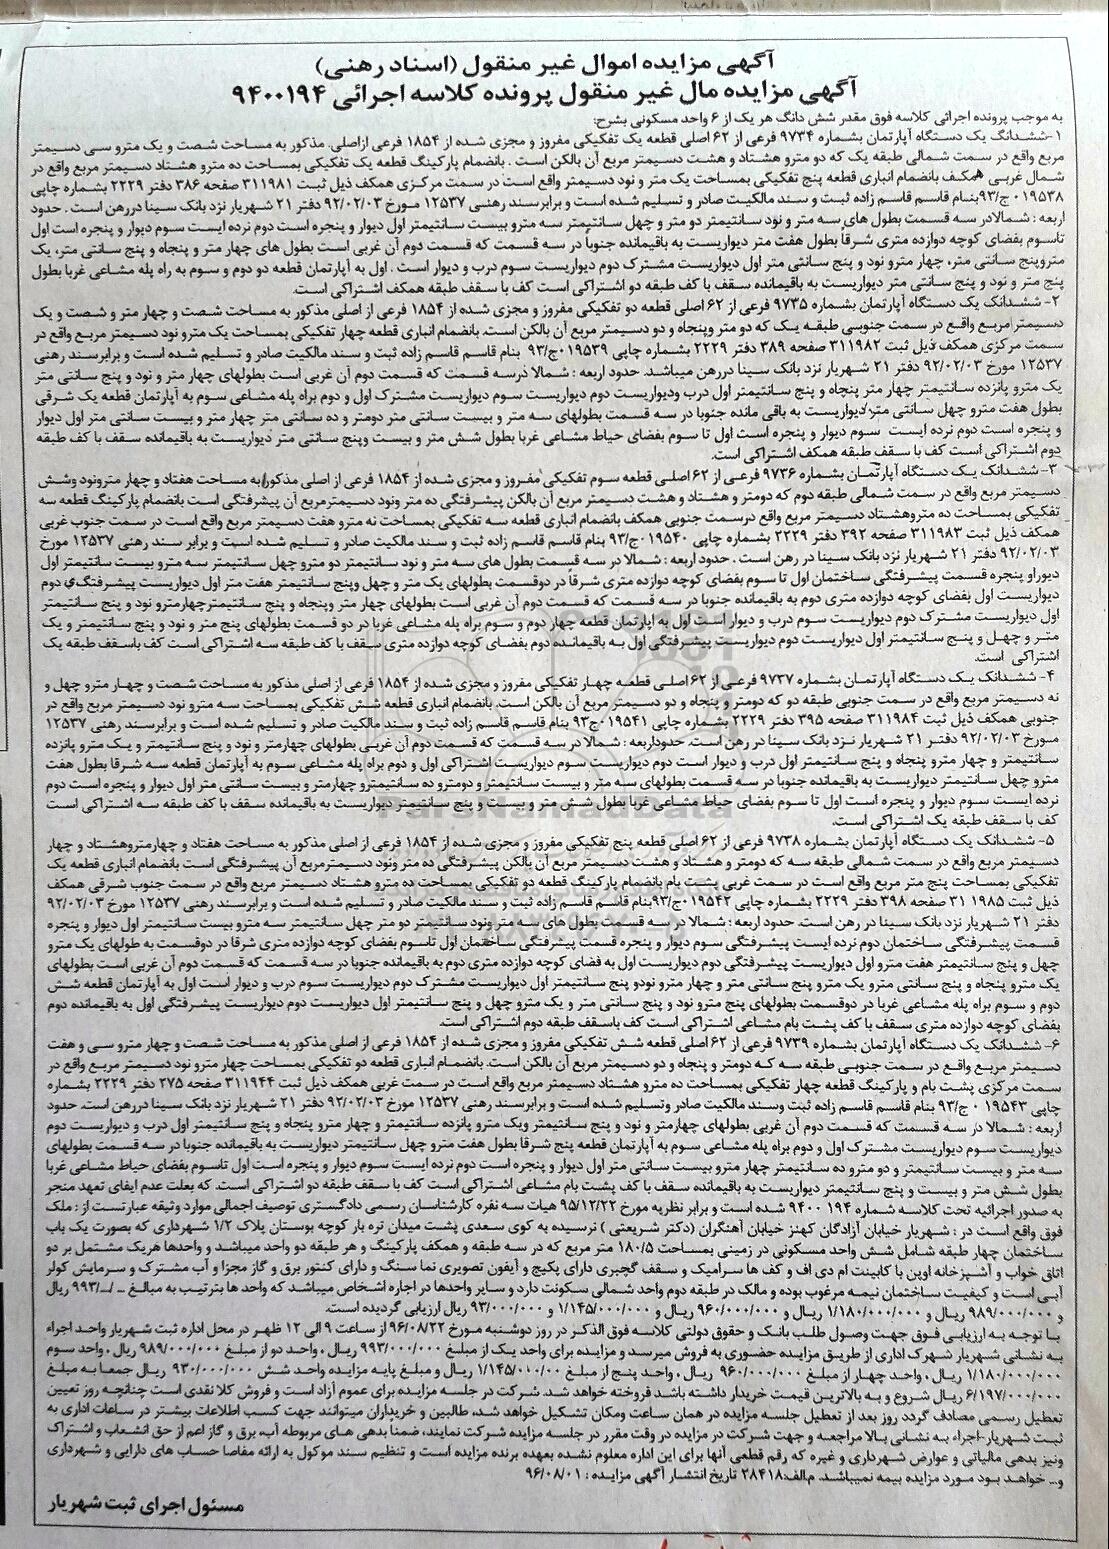 آگهی مزایده اموال غیر منقول (اسناد رهنی)
آگهی مزایده مال غیر منقول پرونده کلاسه اجرائی ۹۴۰۰۱۹۴
به موجب پرونده اجرائی کلاسه فوق مقدر شش دانگ هر یک از ۶ واحد مسکونی بشرح:
۱-ششدانگ یک دستگاه آپارتمان بشماره ۹۷۳۴ فرعی از ۶۲ اصلی قطعه یک تفکیکی مفروز و مجزی شده از ۱۸۵۴ فرعی ازاصلی. مذکور به مساحت شصت و یک مترو سی دسیمتر
مربع واقع در سمت شمالی طبقه یک که دو مترو هشتاد و هشت دسیمتر مربع آن بالکن است . بانضمام پارکینگ قطعه یک تفکیکی بمساحت ده مترو هشتاد دسیمتر مربع واقع در
شمال غربی همکف بانضمام انباری قطعه پنج تفکیکی بمساحت یک متر و نود دسیمتر واقع است در سمت مرکزی همکف ذیل ثبت ۳۱۱۹۸۱ صفحه ۳۸۶ دفتر ۲۲۲۹ بشماره چاپی
۰۱۹۵۳۸ ج/۹۳بنام قاسم قاسم زاده ثبت و سند مالکیت صادر و تسلیم شده است و برابرسند رهنی ۱۲۵۳۷ مورخ ۹۲/۰۲/۰۳ دفتر ۲۱ شهریار نزد بانک سینا دررهن است . حدود
اربعه : شمالادر سه قسمت بطول های سه متر و نود سانتیمتر دو متر و چهل سانتیمتر سه مترو بیست سانتیمتر اول دیوار و پنجره است دوم نرده ایست سوم دیوار و پنجره است اول
تاسوم بفضای کوچه دوازده متری شرقاً بطول هفت متر دیواریست به باقیمانده جنوبا در سه قسمت که قسمت دوم آن غربی است بطول های چهار متر و پنجاه و پنج سانتی متر، یک
متروپنج سانتی متر، چهار مترو نود و پنج سانتی متر اول دیواریست مشترک دوم دیواریست سوم درب و دیوار است . اول به آپارتمان قطعه دو دوم و سوم به راه پله مشاعی غربا بطول
پنج متر و نود و پنج سانتی متر دیواریست به باقیمانده سقف با کف طبقه دو اشتراکی است کف با سقف طبقه همکف اشتراکی است.
۲- ششدانک یک دستگاه آپارتمان بشماره ۹۷۳۵ فرعی از ۶۲ اصلی قطعه دو تفکیکی مفروز و مجزی شده از ۱۸۵۴ فرعی از اصلی مذکور به مساحت شصت و چهار متر و شصت و یک
دسیمتر مربع واقع در سمت جنوبی طبقه یک که دو متر وپنجاه و دو دسیمتر مربع آن بالکن است. بانضمام انباری قطعه چهار تفکیکی بمساحت یک مترو نود دسیمتر مربع واقع در
سمت مرکزی همکف ذیل ثبت ۳۱۱۹۸۲ صفحه ۳۸۹ دفتر ۲۲۲۹ بشماره چاپی ۰۱۹۵۳۹ج/۹۳ بنام قاسم قاسم زاده ثبت و سند مالکیت صادر و تسلیم شده است و برابرسند رهنی
۱۲۵۳۷ مورخ ۹۲/۰۲/۰۳ دفتر ۲۱ شهریار نزد بانک سینا دررهن میباشد. حدود اربعه : شمالا درسه قسمت که قسمت دوم آن غربی است بطولهای چهار متر و نود و پنج سانتی متر
یک مترو پانزده سانتیمتر چهار متر پنجاه و پنج سانتیمتر اول درب ودیواریست دوم دیواریست سوم دیواریست مشترک اول و دوم براه پله مشاعی سوم به آپارتمان قطعه یک شرقی
بطول هفت مترو چهل سانتی متر دیواریست به باقی مانده جنوبا در سه قسمت بطولهای سه متر و بیست سانتی متر دومتر و ده سانتی متر چهار متر و بیست سانتی متر اول دیوار
و پنجره است دوم نرده ایست سوم دیوار و پنجره است اول تا سوم بفضای حیاط مشاعی غربا بطول شش متر و بیست وپنج سانتی متر دیواریست به باقیمانده سقف با کف طبقه
دوم اشتراکی است کف با سقف طبقه همکف اشتراکی است.
۳-ششدانک یک دستگاه آپارتمان بشماره ۹۷۳۶ فرعی از ۶۲ اصلی قطعه سوم تفکیکی مفروز و مجزی شده از ۱۸۵۴ فرعی از اصلی مذکور به مساحت هفتاد و چهار مترونود وشش
دسیمتر مربع واقع در سمت شمالی طبقه دوم که دومتر و هشتاد و هشت دسیمتر مربع آن بالکن پیشرفتگی ده متر ونود دسیمترمربع آن پیشرفتگی است بانضمام پارکینگ قطعه سه
تفکیکی بمساحت ده متروهشتاد دسیمتر مربع واقع درسمت جنوبی همکف بانضمام انباری قطعه سه تفکیکی بمساحت نه مترو هفت دسیمتر مربع واقع است در سمت جنوب غربی
همکف ذیل ثبت ۳۱۱۹۸۳ صفحه ۳۹۲ دفتر ۲۲۲۹ بشماره چاپی ۰۱۹۵۴۰ج/۹۳ بنام قاسم قاسم زاده ثبت و سند مالکیت صادر و تسلیم شده است و برابر سند رهنی ۱۲۵۳۷ مورخ
۹۲/۰۲/۰۳ دفتر ۲۱ شهریار نزد بانک سینا در رهن است . حدود اربعه : شمالا در سه قسمت بطول های سه متر و نود سانتیمتر دو مترو چهل سانتیمتر سه مترو بیست سانتیمتر اول
دیوراو پنجره قسمت پیشرفتگی ساختمان اول تا سوم بفضای کوچه دوازده متری شرقا در دوقسمت بطولهای یک متر و چهل وپنج سانتیمتر هفت متر اول دیواریست پیشرفتگی دوم
دیواریست اول بفضای کوچه دوازده متری دوم به باقیمانده جنوبا در سه قسمت که قسمت دوم آن غربی است بطولهای چهار متر وپنجاه و پنج سانتیمترچهارمترو نود و پنج سانتیمتر
اول دیواریست مشترک دوم دیواریست سوم درب و دیوار است اول به آپارتمان قطعه چهار دوم و سوم براه پله مشاعی غربا در دو قسمت بطولهای پنج متر و نود و پنج سانتیمتر و یک
متر و چهل و پنج سانتیمتر اول دیواریست دوم دیواریست پیشرفتگی اول به باقیمانده دوم بفضای کوچه دوازده متری سقف با کف طبقه سه اشتراکی است کف باسقف طبقه یک
اشتراکی است.
۴- ششدانک یک دستگاه آپارتمان بشماره ۹۷۳۷ فرعی از ۶۲ اصلی قطعه چهار تفکیکی مفروز و مجزی شده از ۱۸۵۴ فرعی از اصلی مذکور به مساحت شصت و چهار مترو چهل و
نه دسیمتر مربع واقع در سمت جنوبی طبقه دو که دومتر و پنجاه و دو دسیمتر مربع آن بالکن است. بانضمام انباری قطعه شش تفکیکی بمساحت سه مترو نود دسیمتر مربع واقع در
جنوبی همکف ذیل ثبت ۳۱۱۹۸۴ صفحه ۳۹۵ دفتر ۲۲۲۹ بشماره چاپی ۰۱۹۵۴۱ج۹۳ بنام قاسم قاسم زاده ثبت و سند مالکیت صادر و تسلیم شده است و برابرسند رهنی ۱۲۵۳۷
مورخ ۹۲/۰۲/۰۳ دفتر ۲۱ شهریار نزد بانک سینا در رهن است. حدوداربعه : شمالا در سه قسمت که قسمت دوم آن غربی بطولهای چهارمتر و نود و پنج سانتیمتر و یک مترو پانزده
سانتیمتر و چهار مترو پنجاه و پنج سانتیمتر اول درب و دیوار است دوم دیواریست سوم دیواریست اشتراکی اول و دوم براه پله مشاعی سوم به آپارتمان قطعه سه شرقا بطول هفت
مترو چهل سانتیمتر دیواریست به باقیمانده جنوبا در سه قسمت بطولهای سه متر و بیست سانتیمتر و دومترو ده سانتیمترو چهارمتر و بیست سانتی متر اول دیوار و پنجره است دوم
نرده ایست سوم دیوار و پنجره است اول تا سوم بفضای حیاط مشاعی غربا بطول شش متر و بیست و پنج سانتیمتر دیواریست به باقیمانده سقف با کف طبقه سه اشتراکی است
کف با سقف طبقه یک اشتراکی است.
۵- ششدانک یک دستگاه آپارتمان بشماره ۹۷۳۸ فرعی از ۶۲ اصلی قطعه پنج تفکیکی مفروز و مجزی شده از ۱۸۵۴ فرعی از اصلی مذکور به مساحت هفتاد و چهارمتروهشتاد و چهار
دسیمتر مربع واقع در سمت شمالی طبقه سه که دومتر و هشتاد و هشت دسیمتر مربع آن بالکن پیشرفتگی ده متر ونود دسیمترمربع آن پیشرفتگی است بانضمام انباری قطعه یک
تفکیکی بمساحت پنج متر مربع واقع است در سمت غربی پشت بام بانضمام پارکینگ قطعه دو تفکیکی بمساحت ده مترو هشتاد دسیمتر مربع واقع در سمت جنوب شرقی همکف
ذیل ثبت ۳۱۱۹۸۵ صفحه ۳۹۸ دفتر ۲۲۲۹ بشماره چاپی ۰۱۹۵۴۲ج/۹۳بنام قاسم قاسم زاده ثبت و سند مالکیت صادر و تسلیم شده است و برابرسند رهنی ۱۲۵۳۷ مورخ ۹۲/۰۲/۰۳
دفتر ۲۱ شهریار نزد بانک سینا در رهن است حدود اربعه : شمالا در سه قسمت بطول های سه متر ونود سانتیمتر دو متر چهل سانتیمتر سه مترو بیست سانتیمتر اول دیوار و پنجره
قسمت پیشرفتگی ساختمان دوم نرده ایست پیشرفتگی سوم دیوار و پنجره قسمت پیشرفتگی ساختمان اول تاسوم بفضای کوچه دوازده متری شرقا در دوقسمت به طولهای یک مترو
چهل و پنج سانتیمتر هفت مترو اول دیواریست پیشرفتگی دوم دیواریست اول به فضای کوچه دوازده متری دوم به باقیمانده جنوبا در سه قسمت که قسمت دوم آن غربی است بطولهای
یک مترو پنجاه و پنج سانتی مترو یک مترو پنج سانتی متر و چهار مترو نودو پنج سانتیمتر اول دیواریست مشترک دوم دیواریست سوم درب و دیوار است اول به آپارتمان قطعه شش
دوم و سوم براه پله مشاعی غربا در دوقسمت بطولهای پنج مترو نود و پنج سانتی متر و یک مترو چهل و پنج سانتیمتر اول دیواریست دوم دیواریست پیشرفتگی اول به باقیمانده دوم
بفضای کوچه دوازده متری سقف با کف پشت بام مشاعی اشتراکی است کف باسقف طبقه دوم اشتراکی است.
۶- ششدانک یک دستگاه آپارتمان بشماره ۹۷۳۹ فرعی از ۶۲ اصلی قطعه شش تفکیکی مفروز و مجزی شده از ۱۸۵۴ فرعی از اصلی مذکور به مساحت شصت و چهار مترو سی و هفت
دسیمتر مربع واقع در سمت جنوبی طبقه سه که دومتر و پنجاه و دو دسیمتر مربع آن بالکن است. بانضمام انباری قطعه دو تفکیکی بمساحت چهار مترو نود دسیمتر مربع واقع در
سمت مرکزی پشت بام و پارکینگ قطعه چهار تفکیکی بمساحت ده مترو هشتاد دسیمتر مربع واقع است در سمت غربی همکف ذیل ثبت ۳۱۱۹۴۴ صفحه ۲۷۵ دفتر ۲۲۲۹ بشماره
چاپی ۰۱۹۵۴۳ ج/۹۳ بنام قاسم قاسم زاده ثبت وسند مالکیت صادر وتسلیم شده است و برابرسند رهنی ۱۲۵۳۷ مورخ ۹۲/۰۲/۰۳ دفتر ۲۱ شهریار نزد بانک سینا دررهن است. حدود
اربعه : شمالا در سه قسمت که قسمت دوم آن غربی بطولهای چهارمتر و نود و پنج سانتیمتر ویک مترو پانزده سانتیمتر و چهار مترو پنجاه و پنج سانتیمتر اول درب و دیواریست دوم
دیواریست سوم دیواریست مشترک اول و دوم براه پله مشاعی سوم به آپارتمان قطعه پنج شرقا بطول هفت مترو چهل سانتیمتر دیواریست به باقیمانده جنوبا در سه قسمت بطولهای
سه متر و بیست سانتیمتر و دو مترو ده سانتیمتر چهار مترو بیست سانتی متر اول دیوار و پنجره است دوم نرده ایست سوم دیوار و پنجره است اول تاسوم بفضای حیاط مشاعی غربا
بطول شش متر و بیست و پنج سانتیمتر دیواریست به باقیمانده سقف با کف پشت بام مشاعی اشتراکی است کف با سقف طبقه دو اشتراکی است. که بعلت عدم ایفای تعهد منجر
به صدور اجرائیه تحت کلاسه شماره ۱۹۴ ۹۴۰۰ شده است و برابر نظریه مورخ ۹۵/۱۲/۲۲ هیات سه نفره کارشناسان رسمی دادگستری توصیف اجمالی موارد وثیقه عبارتست از : ملک
فوق واقع است در : شهریار خیابان آزادگان کهنز خیابان آهنگران (دکتر شریعتی ) نرسیده به کوی سعدی پشت میدان تره بار کوچه بوستان پلاک ۱/۲ شهرداری که بصورت یک باب
ساختمان چهار طبقه شامل شش واحد مسکونی در زمینی بمساحت ۱۸۰/۵ متر مربع که در سه طبقه و همکف پارکینگ و هر طبقه دو واحد میباشد و واحدها هریک مشتمل بر دو
اتاق خواب و آشپزخانه اوپن با کابینت ام دی اف و کف ها سرامیک و سقف گچبری دارای پکیج و آیفون تصویری نما سنگ و دارای کنتور برق و گاز مجزا و آب مشترک و سرمایش کولر
آبی است و کیفیت ساختمان نیمه مرغوب بوده و مالک در طبقه دوم واحد شمالی سکونت دارد و سایر واحدها در اجاره اشخاص میباشد که واحد ها بترتیب به مبالغ ۹۹۳/ ریال
و ۹۸۹/۰۰۰/۰۰۰ ریال و ۱/۱۸۰/۰۰۰/۰۰۰ ریال و ۹۶۰/۰۰۰/۰۰۰ ریال و ۱/۱۴۵/۰۰۰/۰۰۰ و ۹۳/۰۰۰/۰۰۰ ریال ارزیابی گردیده است.
با توجه به ارزیابی فوق جهت وصول طلب بانک و حقوق دولتی کلاسه فوق الذکر در روز دوشنبه مورخ ۹۶/۰۸/۲۲ از ساعت ۹ الی ۱۲ ظهر در محل اداره ثبت شهریار واحد اجراء
به نشانی شهریار شهرک اداری از طریق مزایده حضوری به فروش میرسد و مزایده برای واحد یک از مبلغ ۹۹۳/۰۰۰/۰۰۰ ریال ، واحد دو از مبلغ ۹۸۹/۰۰۰/۰۰۰ ریال ، واحد سوم
۱/۱۸۰/۰۰۰/۰۰۰ ریال ، واحد چهار از مبلغ ۹۶۰/۰۰۰/۰۰۰ ریال ، واحد پنج از مبلغ ۱/۱۴۵/۰۱۰/۰۰ ریال و مبلغ پایه مزایده واحد شش ۹۳۰/۰۰۰/۰۰۰ ریال جمعا به مبلغ
۶/۱۹۷/۰۰۰/۰۰۰ ریال شروع و به بالاترین قیمت خریدار داشته باشد فروخته خواهد شد. شرکت در جلسه مزایده برای عموم آزاد است و فروش کلا نقدی است چنانچه روز تعیین
تعطیل رسمی مصادف گردد روز بعد از تعطیل جلسه مزایده در همان ساعت ومکان تشکیل خواهد شد، طالبین و خریداران میتوانند جهت کسب اطلاعات بیشتر در ساعات اداری به
ثبت شهریار-اجراء به نشانی بالا مراجعه و جهت شرکت در مزایده در وقت مقرر در جلسه مزایده شرکت نمایند، ضمنا بدهی های مربوطه آب، برق و گاز اعم از حق انشعاب و اشتراک
ونیز بدهی مالیاتی و عوارض شهرداری و غیره که رقم قطعی آنها برای این اداره معلوم نشده بعهده برنده مزایده است و تنظیم سند موکول به ارائه مفاصا حساب های دارایی و شهرداری
و... خواهد بود مورد مزایده بیمه نمیباشد. م.الف:۲۸۴۱۸ تاریخ انتشار آگهی مزایده : ۹۶/۰۸/۰۱
مسئول اجرای ثبت شهریار
ParsNamadData